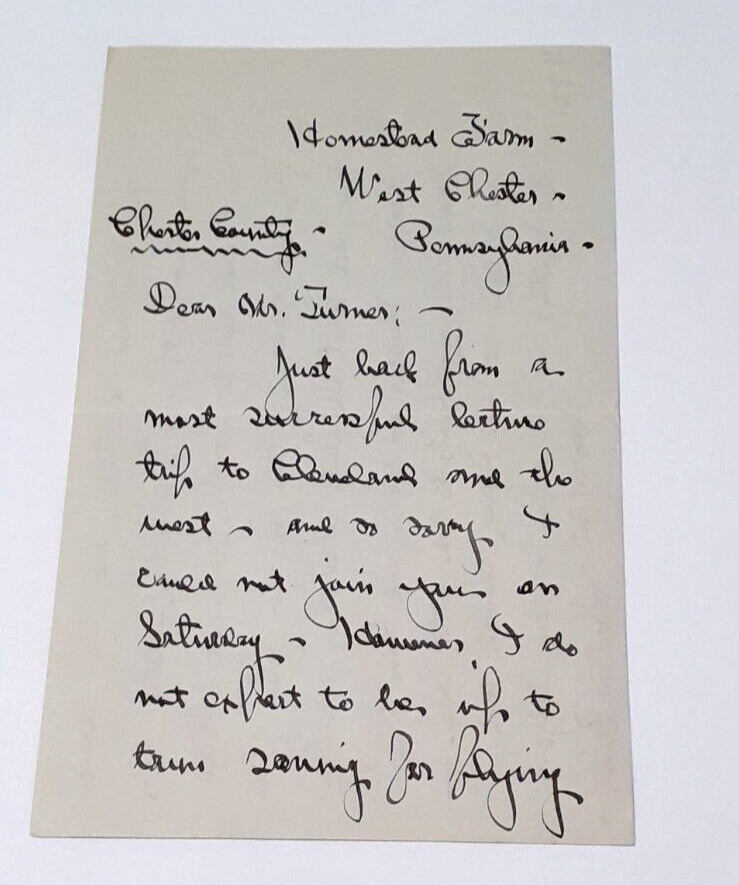 Homestead Farm -
West Chester -
Chester County - Pennsylvania -
Dear Mr. Turner; -
Just back from a
most successful lecture
trip to Cleveland and the
west - and so sorry I
could not join you on
Saturday - However, I do
not expect to be up to
for flying